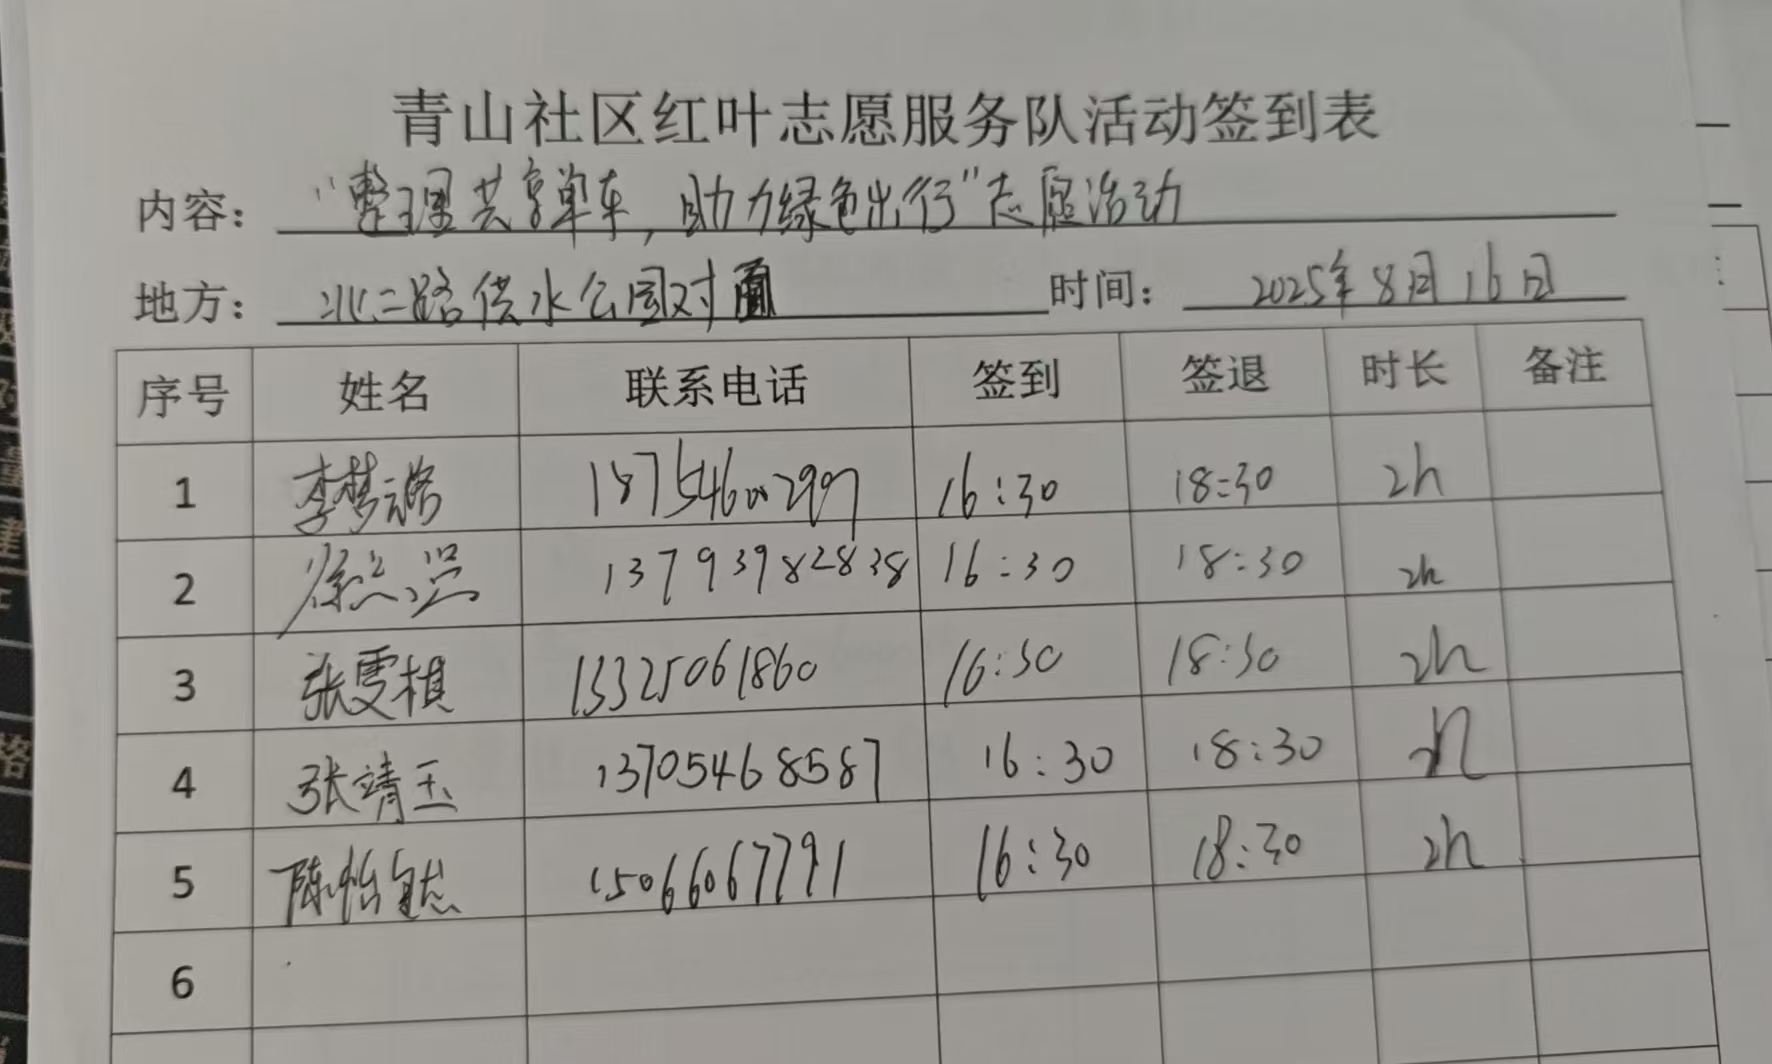 青山社区红叶志愿服务队活动签到表
内容："整理共享单车，助力绿色出行"志愿活动
地方：北二路供水公园对面 时间：2025年8月16日
序号 姓名 联系电话 签到 签退 时长 备注
1 李梦璐 18754600297 16:30 18:30 2h
2 13793982838 16:30 18:30 2h
3 张雯棋 13325061860 16:30 18:30 2h
4 张靖玉 13705468587 16:30 18:30 2h
5 陈怡 15066067791 16:30 18:30 2h
6